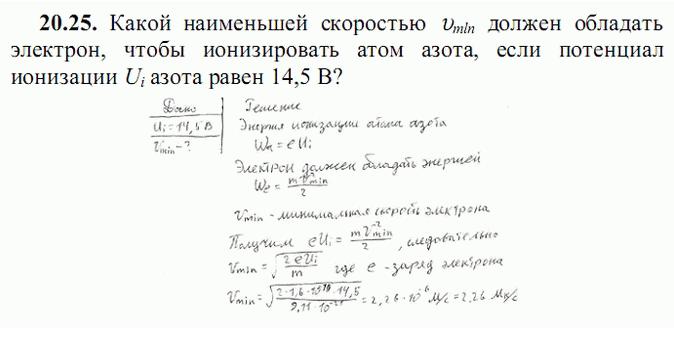 20.25. Какой наименьшей скоростью υmin должен обладать
электрон, чтобы ионизировать атом азота, если потенциал
ионизации Ui азота равен 14,5 В?
Дано
Решение
Ui = 14,5 В
Энергия ионизации атома азота
Vmin - ?
Wи = eUi
Электрон должен обладать энергией
We = mV²min / 2
Vmin - минимальная скорость электрона
Получим eUi = mV²min / 2, следовательно
Vmin = √(2eUi / m) где e - заряд электрона
Vmin = √(2·1,6·10¹⁹·14,5 / 9,11·10⁻³¹) = 2,26·10⁻⁶ м/с = 2,26 Мм/с